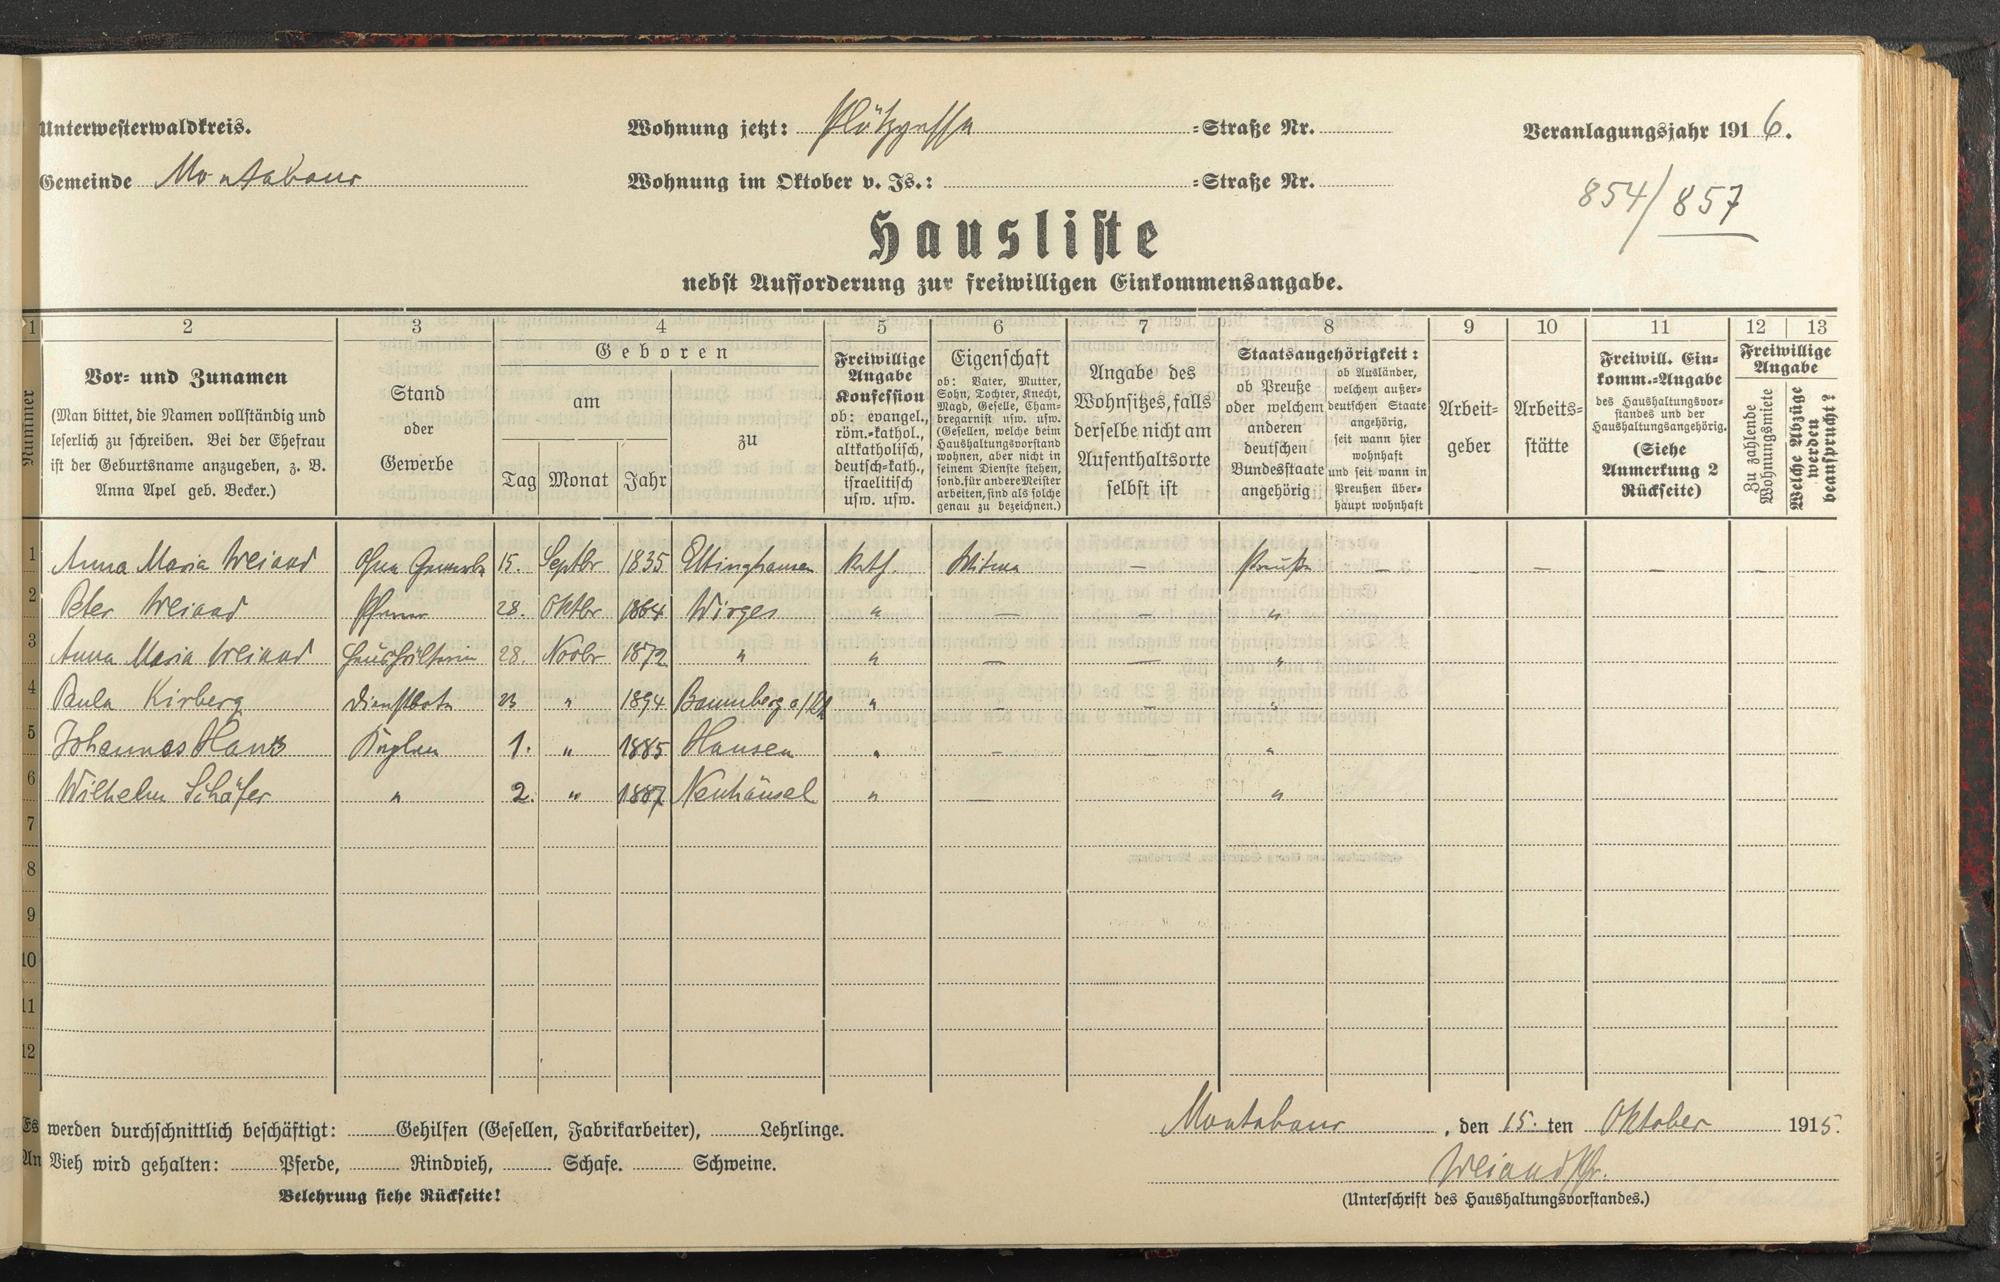 Unterwesterwaldkreis.
Wohnung jetzt: Plötzgasse =Straße Nr.
Veranlagungsjahr 1916.
Gemeinde Montabaur
Wohnung im Oktober v. Js.: =Straße Nr.
854/857
Hausliste
nebst Aufforderung zur freiwilligen Einkommensangabe.
1 2 3 4 5 6 7 8 9 10 11 12 13
Nummer
Vor= und Zunamen
(Man bittet, die Namen vollständig und
leserlich zu schreiben. Bei der Ehefrau
ist der Geburtsname anzugeben, z. B.
Anna Apel geb. Becker.)
Stand
oder
Gewerbe
Geboren
am
Tag Monat Jahr
zu
Freiwillige
Angabe
Konfession
ob: evangel.,
röm.=kathol.,
altkatholisch,
deutsch=kath.,
israelitisch
usw. usw.
Eigenschaft
ob: Vater, Mutter,
Sohn, Tochter, Knecht,
Magd, Geselle, Cham=
bregarnist usw. usw.
(Gesellen, welche beim
Haushaltungsvorstand
wohnen, aber nicht in
seinem Dienste stehen,
sond. für andere Meister
arbeiten, sind als solche
genau zu bezeichnen.)
Angabe des
Wohnsitzes, falls
derselbe nicht am
Aufenthaltsorte
selbst ist
Staatsangehörigkeit:
ob Preuße
oder welchem
anderen
deutschen
Bundesstaate
angehörig
ob Ausländer,
welchem außer=
deutschen Staate
angehörig,
seit wann hier
wohnhaft
und seit wann in
Preußen über=
haupt wohnhaft
Arbeit=
geber
Arbeits=
stätte
Freiwill. Ein=
komm.=Angabe
des Haushaltungsvor=
standes und der
Haushaltungsangehörig.
(Siehe
Anmerkung 2
Rückseite)
Freiwillige
Angabe
Zu zahlende
Wohnungsmiete
Welche Abzüge
werden
beansprucht?
1 Anna Maria Weiand Ohne Gewerbe 15. Septbr 1835 Ettinghausen kath. Witwe — Preuße — — — — — —
2 Peter Weiand Pfarrer 28. Oktbr 1864 Wirges " — — "
3 Anna Maria Weiand Haushälterin 28. Novbr 1872 " " — — "
4 Paula Kirberg Dienstbote 23 " 1894 Baumberg a/Rh " — — "
5 Johannes Hans Kaplan 1. " 1885 Hausen " — — "
6 Wilhelm Schäfer " 2. " 1887 Neuhäusel " — "
7
8
9
10
11
12
Es werden durchschnittlich beschäftigt: Gehilfen (Gesellen, Fabrikarbeiter), Lehrlinge.
Montabaur, den 15. ten Oktober 1915.
An Vieh wird gehalten: Pferde, Rindvieh, Schafe. Schweine.
Weiand Pfr.
Belehrung siehe Rückseite!
(Unterschrift des Haushaltungsvorstandes.)